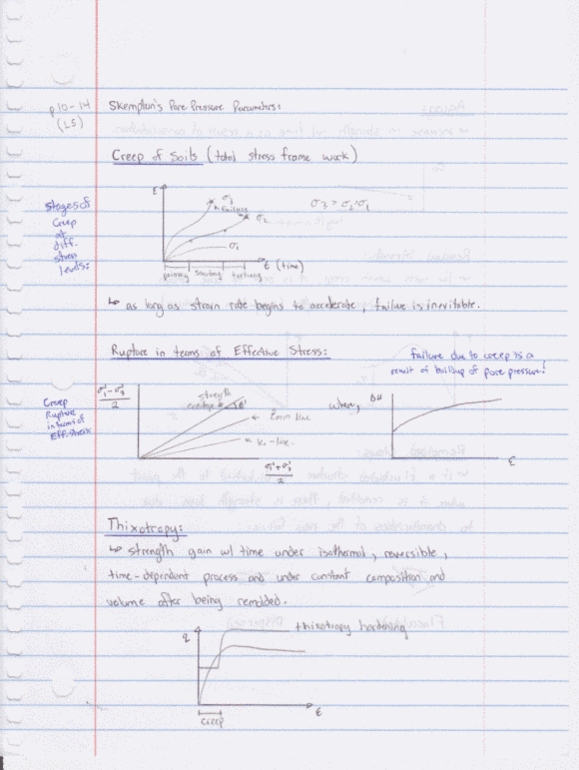 p10-14
(LS)
Skempton's Pore Pressure Parameters:
Creep of Soils (total stress frame work)
stages of
Creep
at
diff.
stress
levels:
ε
σ3
failure
σ2
σ1
σ3 > σ2 > σ1
t (time)
primary
secondary
tertiary
↳ as long as strain rate begins to accelerate, failure is inevitable.
Rupture in terms of Effective Stress:
failure due to creep is a
result of buildup of pore pressure!
Creep
Rupture
in terms of
Eff. stress
σ1'-σ3'
2
strength
envelope
φ'
line
K0-line
σ1'+σ3'
2
when,
Δu
ε
Thixotropy:
↳ strength gain w/ time under isothermal, reversible,
time-dependent process and under constant composition and
volume after being remolded.
q
thixotropy hardening
creep
ε